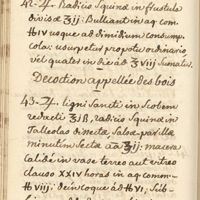 42. ♃. Radicis Squinæ in frustula
divisæ ℥ij: Bulliant in aq. com.
℔iv usque ad dimidium consump.
cola: usurpetur pro potu ordinario
vel quater in die ad ℥viij Sumatur.
Decoction appellée des bois
43. ♃. ligni Sancti in Scobem
redacti ℥iß, Radicis Squinæ in
Taleolas disectæ, Salsaparillæ
minutim sectæ aa ℥ij: macera
Calidè in vase terreo aut vitreo
clauso XXIV horas in aq. comm.
℔viij; dein Coque ad ℔vi, Sub-